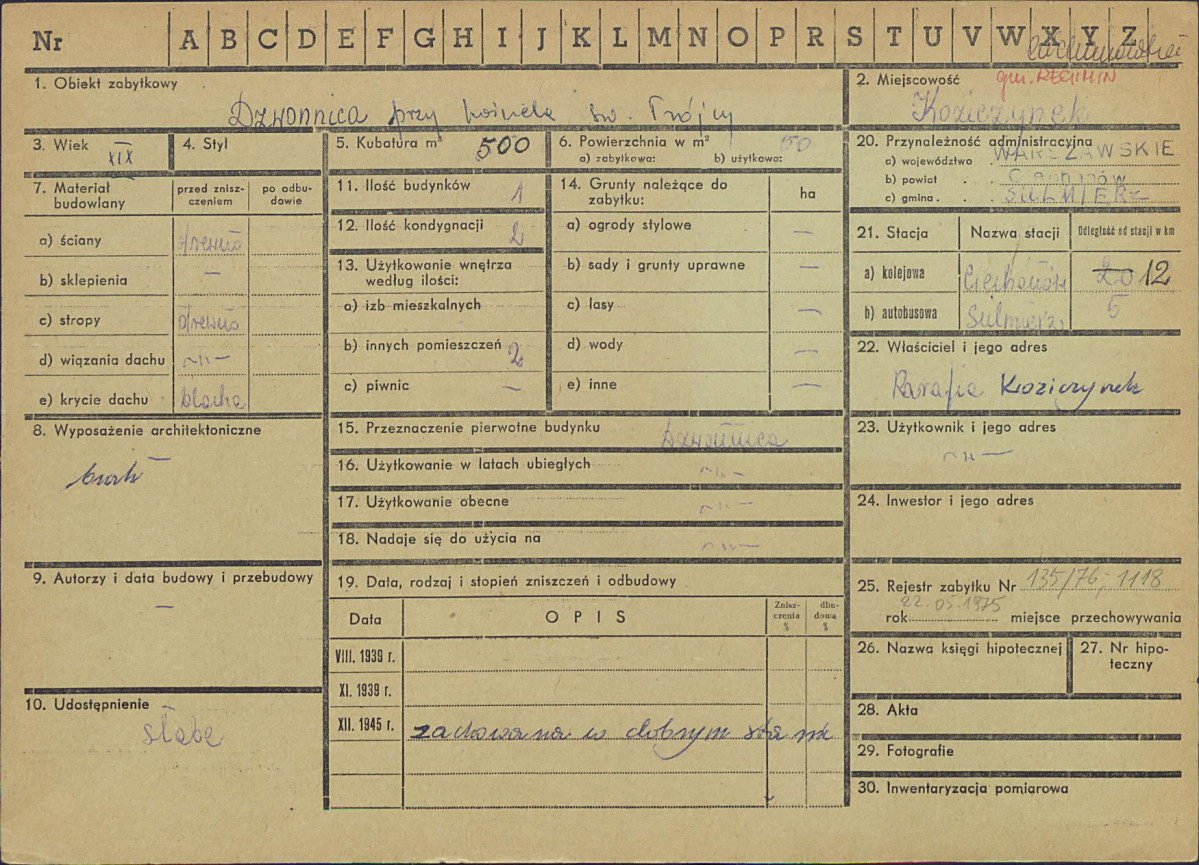 Nr A B C D E F G H I J K L M N O P R S T U V W X Y Z
ciechanowskie
1. Obiekt zabytkowy
Dzwonnica przy kościele św. Trójcy
2. Miejscowość
gm. REGIMIN
Koziczynek
3. Wiek XIX
4. Styl
5. Kubatura m³ 500
6. Powierzchnia w m² 50
a) zabytkowa: b) użytkowa:
7. Materiał budowlany
przed znisz-
czeniem
po odbu-
dowie
a) ściany drewno
b) sklepienia —
c) stropy drewno
d) wiązania dachu ~"—
e) krycie dachu blacha
8. Wyposażenie architektoniczne
brak
9. Autorzy i data budowy i przebudowy
—
10. Udostępnienie
słabe
11. Ilość budynków 1
12. Ilość kondygnacji 2
13. Użytkowanie wnętrza
według ilości:
a) izb mieszkalnych
b) innych pomieszczeń 2
c) piwnic —
14. Grunty należące do
zabytku:
ha
a) ogrody stylowe —
b) sady i grunty uprawne —
c) lasy —
d) wody —
e) inne —
15. Przeznaczenie pierwotne budynku Dzwonnica
16. Użytkowanie w latach ubiegłych ~"—
17. Użytkowanie obecne ~"—
18. Nadaje się do użycia na ~"—
19. Data, rodzaj i stopień zniszczeń i odbudowy
Data OPIS
Znisz-
czenia
%
dbu-
dowa
%
VIII. 1939 r.
XI. 1939 r.
XII. 1945 r. zachowana w dobrym stanie
20. Przynależność administracyjna
a) województwo WARSZAWSKIE
b) powiat Ciechanów
c) gmina SULMIERZ
21. Stacja Nazwa stacji Odległość od stacji w km
a) kolejowa Ciechanów 20 12
b) autobusowa Sulmierz 5
22. Właściciel i jego adres
Parafia Koziczynek
23. Użytkownik i jego adres
~"—
24. Inwestor i jego adres
25. Rejestr zabytku Nr 135/76; 1118
rok 22.05.1975 miejsce przechowywania
26. Nazwa księgi hipotecznej
27. Nr hipo-
teczny
28. Akta
29. Fotografie
30. Inwentaryzacja pomiarowa